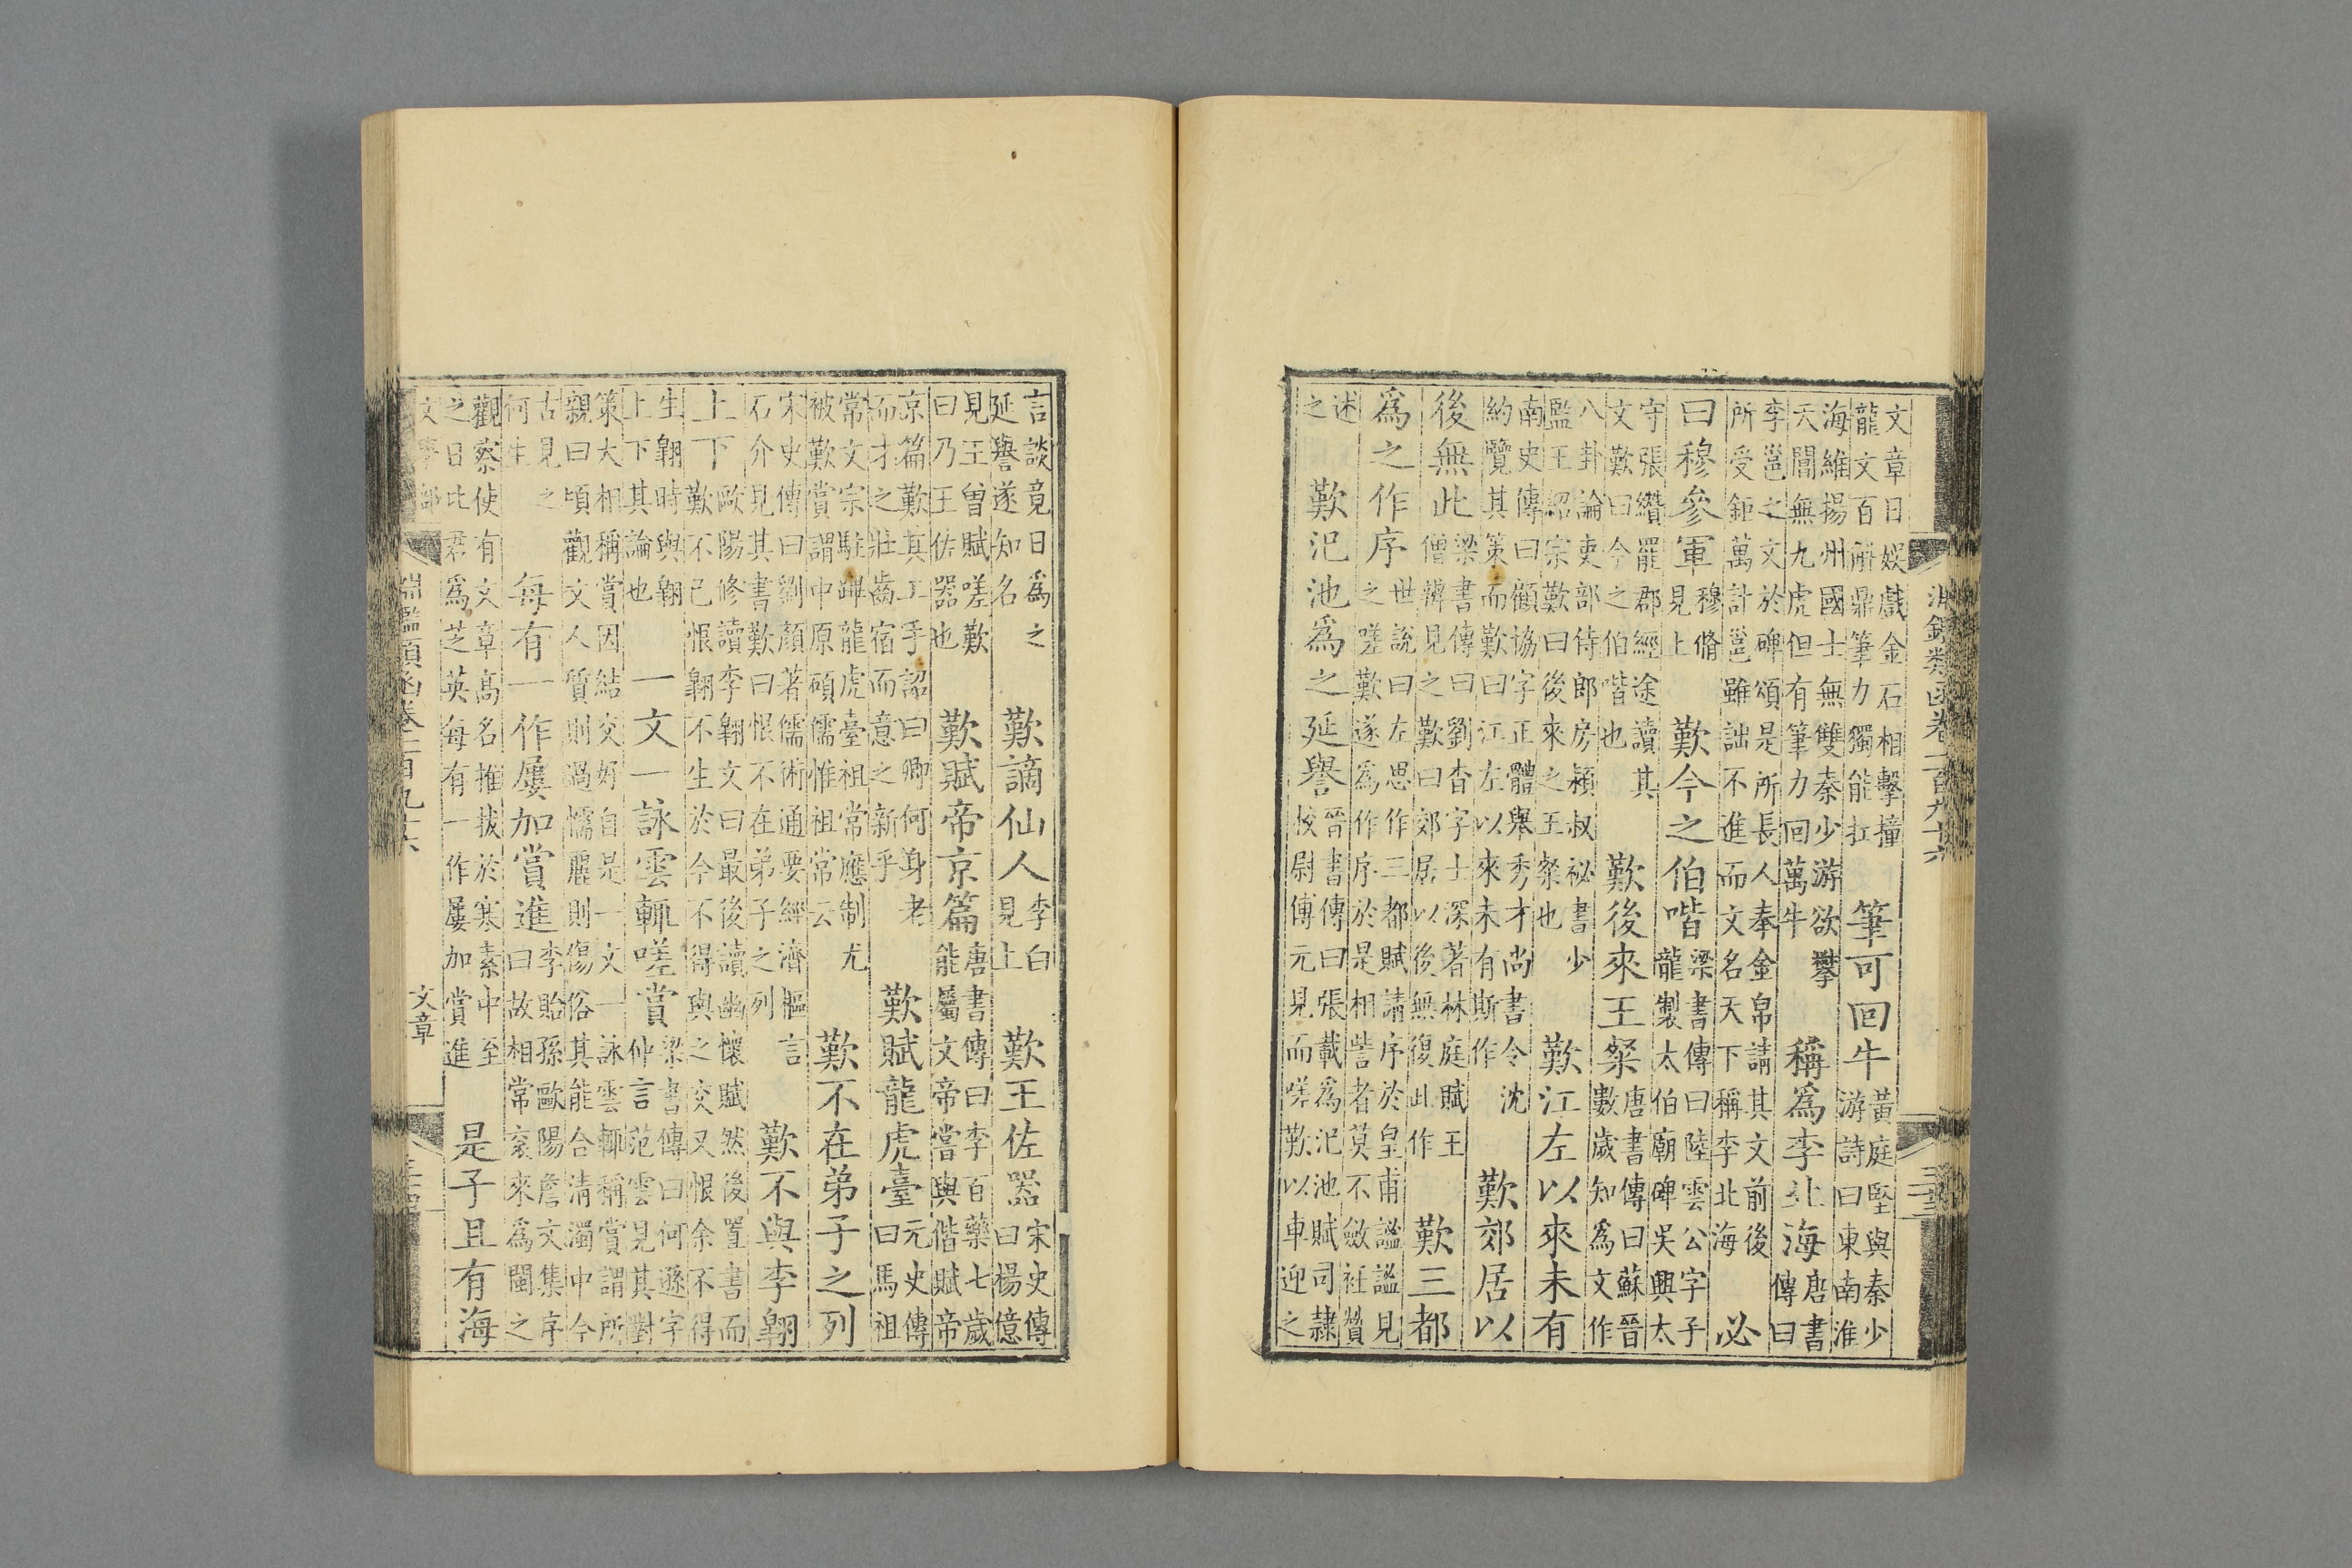 淵鑑類函卷一百九十六
文章日娯戲金石相擊撞
龍文百斛鼎筆力獨能扛
筆可回牛
黃庭堅與秦少
游詩曰東南淮
海維揚州國士無雙秦少游欲攀
天間無九虎但有筆力回萬牛
稱爲李北海
唐書
傳曰
李邕之文於碑頌是所長人奉金帛請其文前後
所受鉅萬計邕雖詘不進而文名天下稱李北海
必
曰穆參軍
穆脩
見上
歎今之伯喈
梁書傳曰陸雲公字子
龍製太伯廟碑吳興太
守張纘罷郡經途讀其
文歎曰今之伯喈也
歎後來王粲
唐書傳曰蘇晉
數歲知爲文作
八卦論吏部侍郎房穎叔祕書少
監王紹宗歎曰後來之王粲也
歎江左以來未有
南史傳曰顧協字正體舉秀才尚書令沈
約覽其策而歎曰江左以來未有斯作
歎郊居以
後無此
梁書傳曰劉杳字士深著林庭賦王
僧辯見之歎曰郊居以後無復此作
歎三都
爲之作序
世說曰左思作三都賦請序於皇甫謐謐見
之嗟歎遂爲作序於是相訾者莫不斂衽贊
述
之
歎汜池爲之延譽
晉書傳曰張載爲汜池賦司隸
校尉傅元見而嗟歎以車迎之
言談竟日爲之
延譽遂知名
歎謫仙人
李白
見上
歎王佐器
宋史傳
曰楊億
見王曾賦嗟歎
曰乃王佐器也
歎賦帝京篇
唐書傳曰李百藥七歲
能屬文帝嘗與偕賦帝
京篇歎其工手詔曰卿何身老
而才之壯齒宿而意之新乎
歎賦龍虎臺
元史傳
曰馬祖
常文宗駐蹕龍虎臺祖常應制尤
被歎賞謂中原碩儒惟祖常云
歎不在弟子之列
宋史傳曰劉顏著儒術通要經濟樞言
石介見其書歎曰恨不在弟子之列
歎不與李翺
上下
歐陽修讀李翺文曰最後讀幽懷賦然後置書而
歎不已恨翺不生於今不得與之交又恨余不得
生翺時與翺
上下其論也
一文一詠雲輒嗟賞
梁書傳曰何遜字
仲言范雲見其對
策大相稱賞因結交好自是一文一詠雲輒稱賞謂所
親曰頃觀文人質則過懦麗則傷俗其能合清濁中今
古見之
何生
每有一作屢加賞進
李貽孫歐陽詹文集序
曰故相常袞來爲閩之
觀察使有文章高名推拔於寒素中至
之日比君爲芝英每有一作屢加賞進
是子且有海
文學部
淵鑑類函卷一百九十六
文章